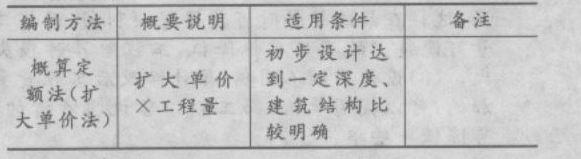 编制方法 概要说明 适用条件 备注
概算定额法(扩大单价法) 扩大单价×工程量 初步设计达到一定深度、建筑结构比较明确